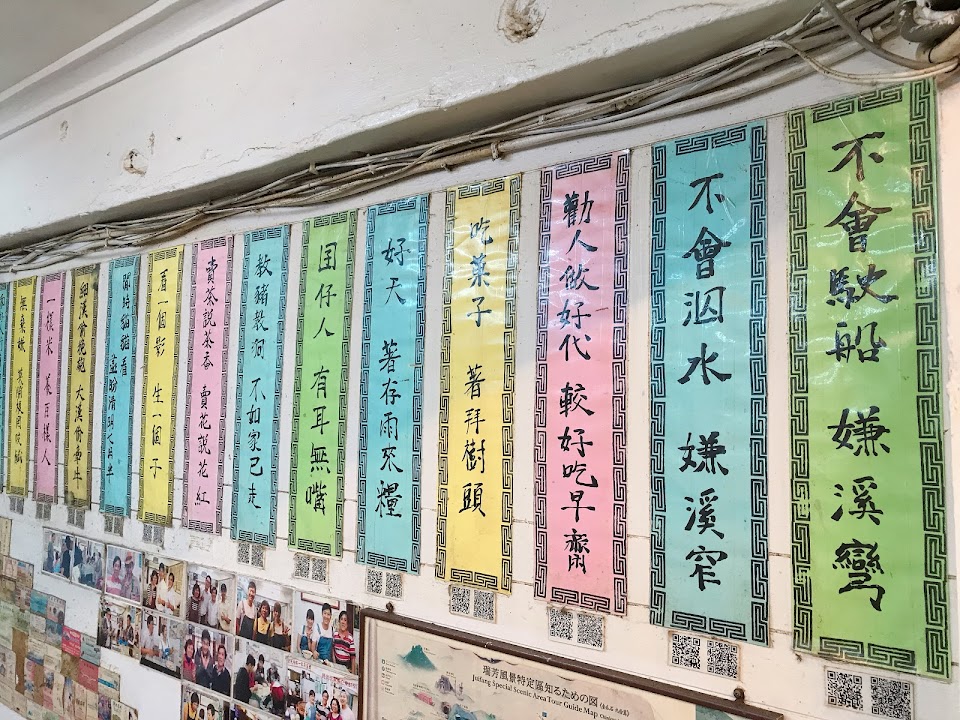 不會駛船 嫌溪彎
不會泅水 嫌溪窄
勸人做好代 較好吃早齋
吃菓子 著拜樹頭
好天 著存雨來糧
囝仔人 有耳無嘴
教豬教狗 不如家己走
賣茶説茶香 賣花説花紅
看一個影 生一個子
細漢偷挽匏 大漢偷牽牛
一樣米 養百樣人
瑞芳風景特定區知るための図
Juifang Special Scenic Area Tour Guide Map